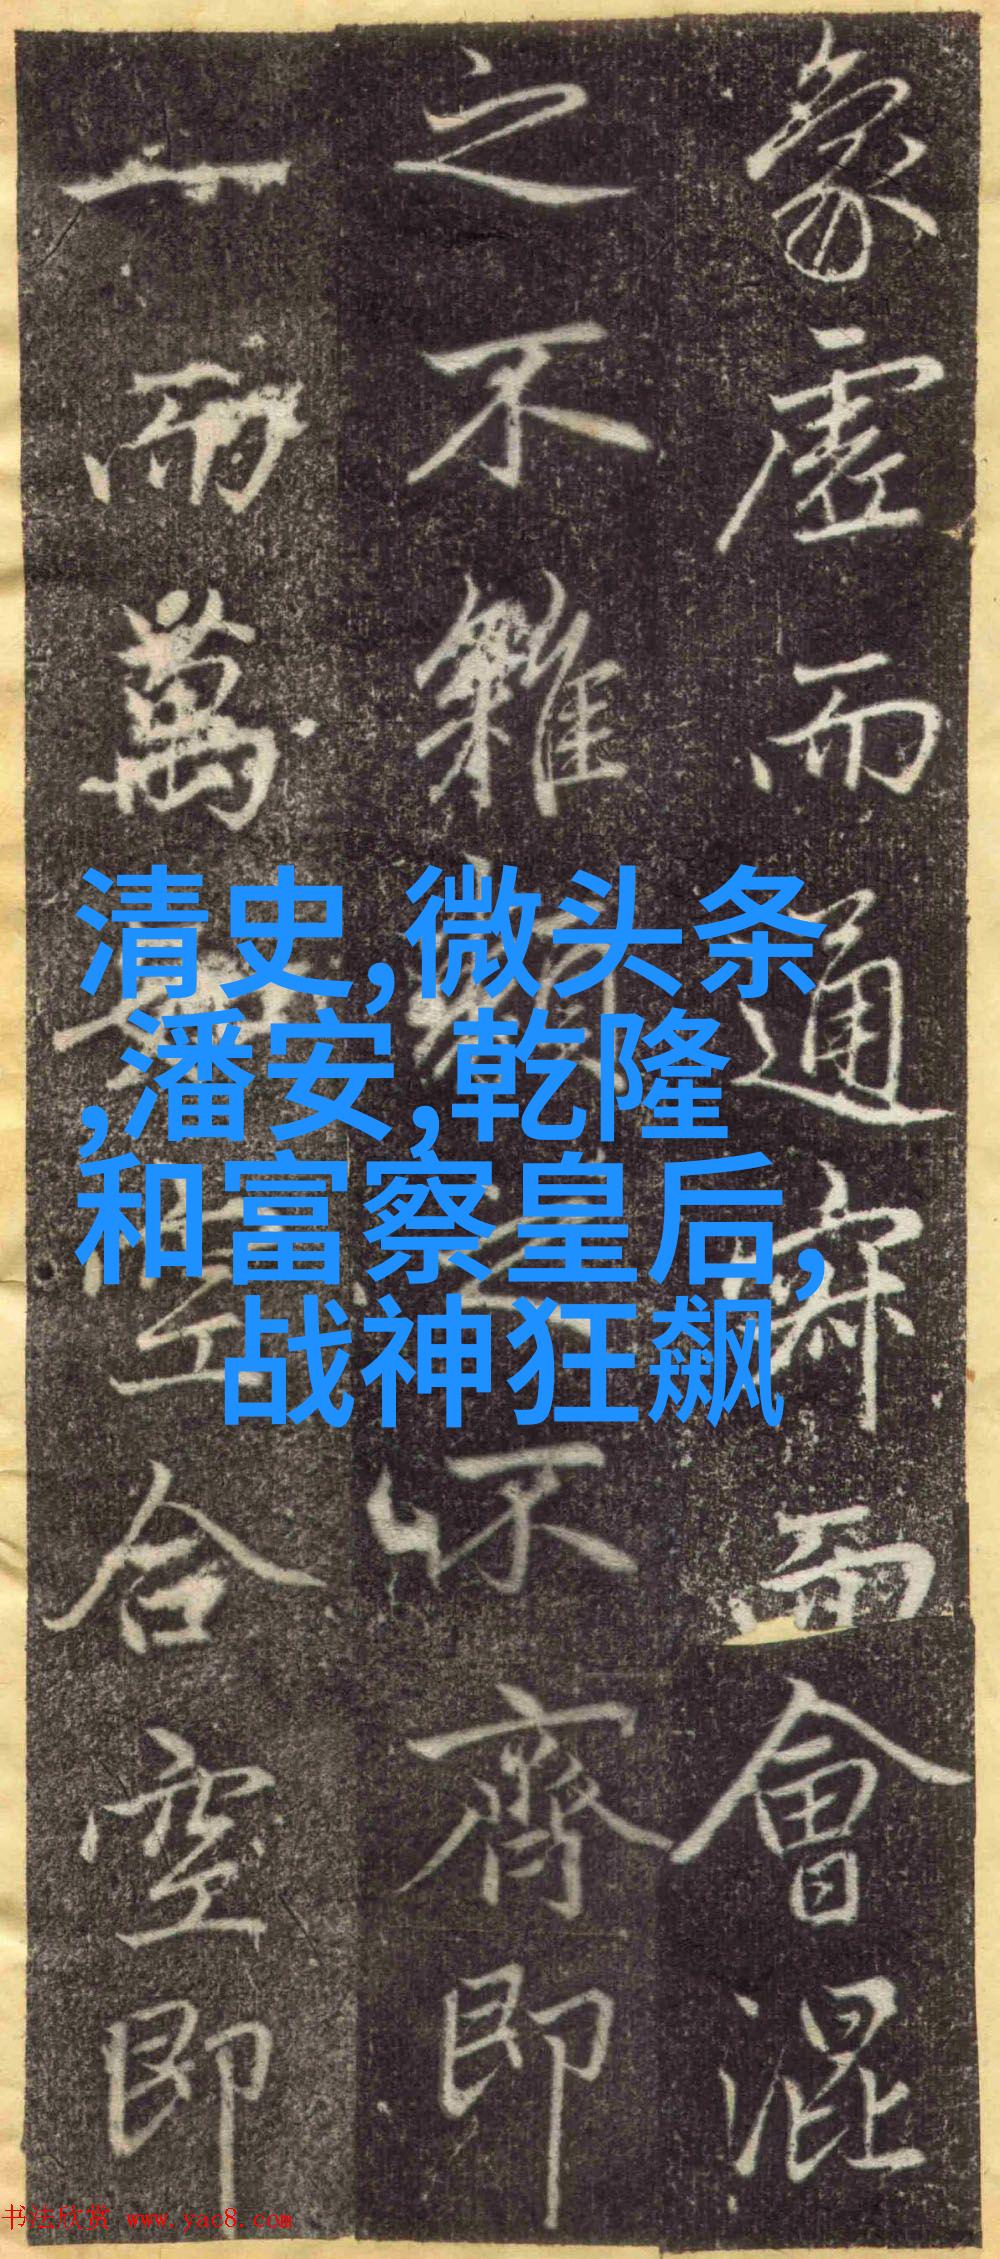 象虚而通寂而會混
之不雜
不齊即
一而萬
合空即
清史,微头条
,潘安,乾隆
和富察皇后,
战神狂飙
书法欣赏 www.yac8.com